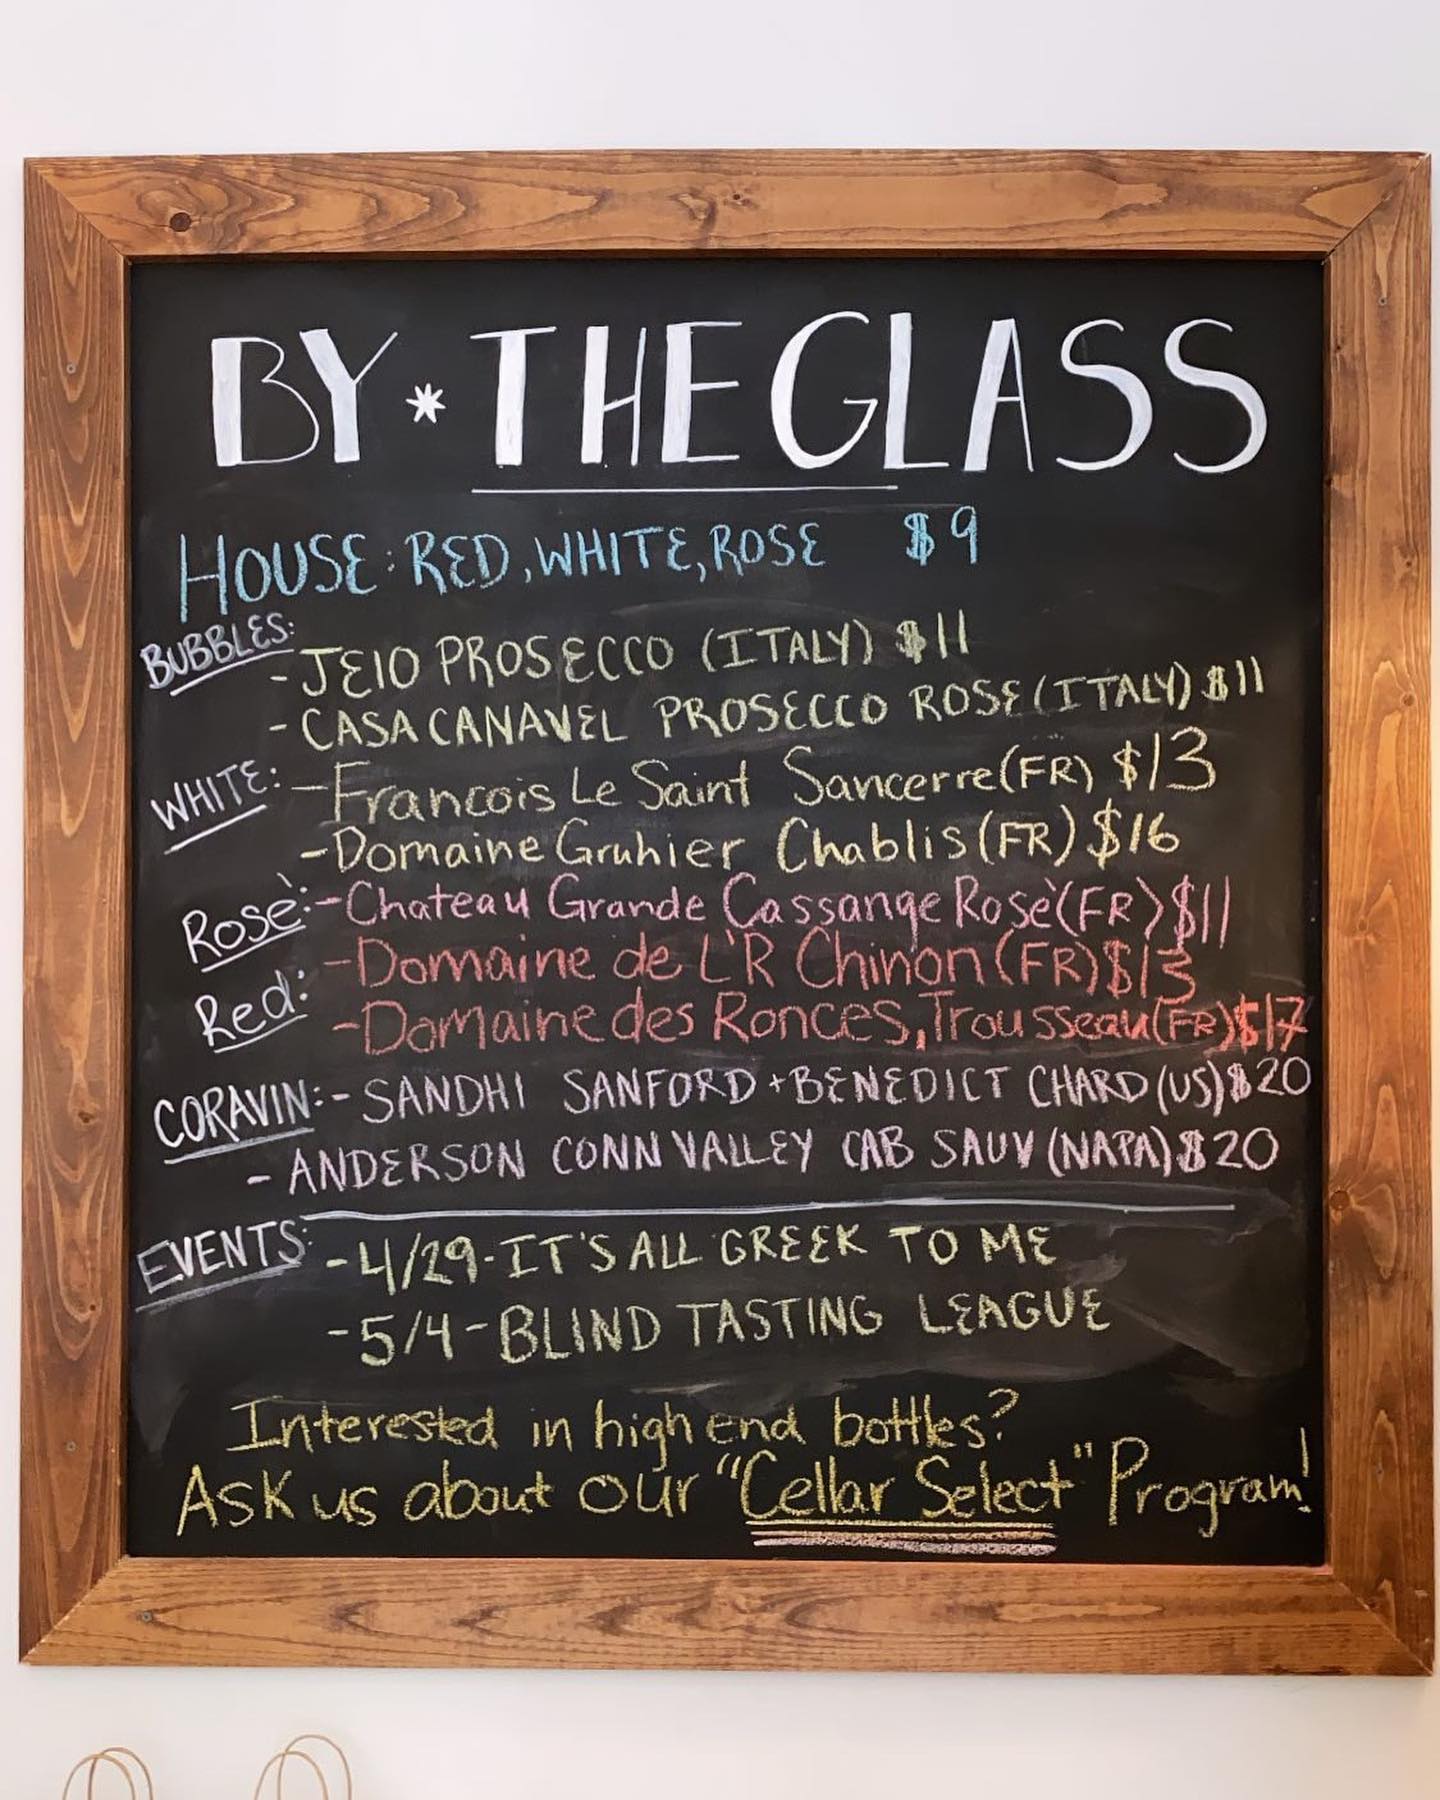 BY * THE GLASS
HOUSE: RED, WHITE, ROSE $9
BUBBLES:
- JEIO PROSECCO (ITALY) $11
- CASA CANAVEL PROSECCO ROSE (ITALY) $11
WHITE: - Francois Le Saint Sancerre (FR) $13
- Domaine Gruhier Chablis (FR) $16
Rosè: - Chateau Grande Cassange Rosè (FR) $11
Red: - Domaine de L'R Chinon (FR) $15
- Domaine des Ronces, Trousseau (FR) $17
CORAVIN: - SANDHI SANFORD + BENEDICT CHARD (US) $20
- ANDERSON CONN VALLEY CAB SAUV (NAPA) $20
EVENTS: - 4/29 - IT'S ALL GREEK TO ME
- 5/4 - BLIND TASTING LEAGUE
Interested in high end bottles?
Ask us about our "Cellar Select" Program!